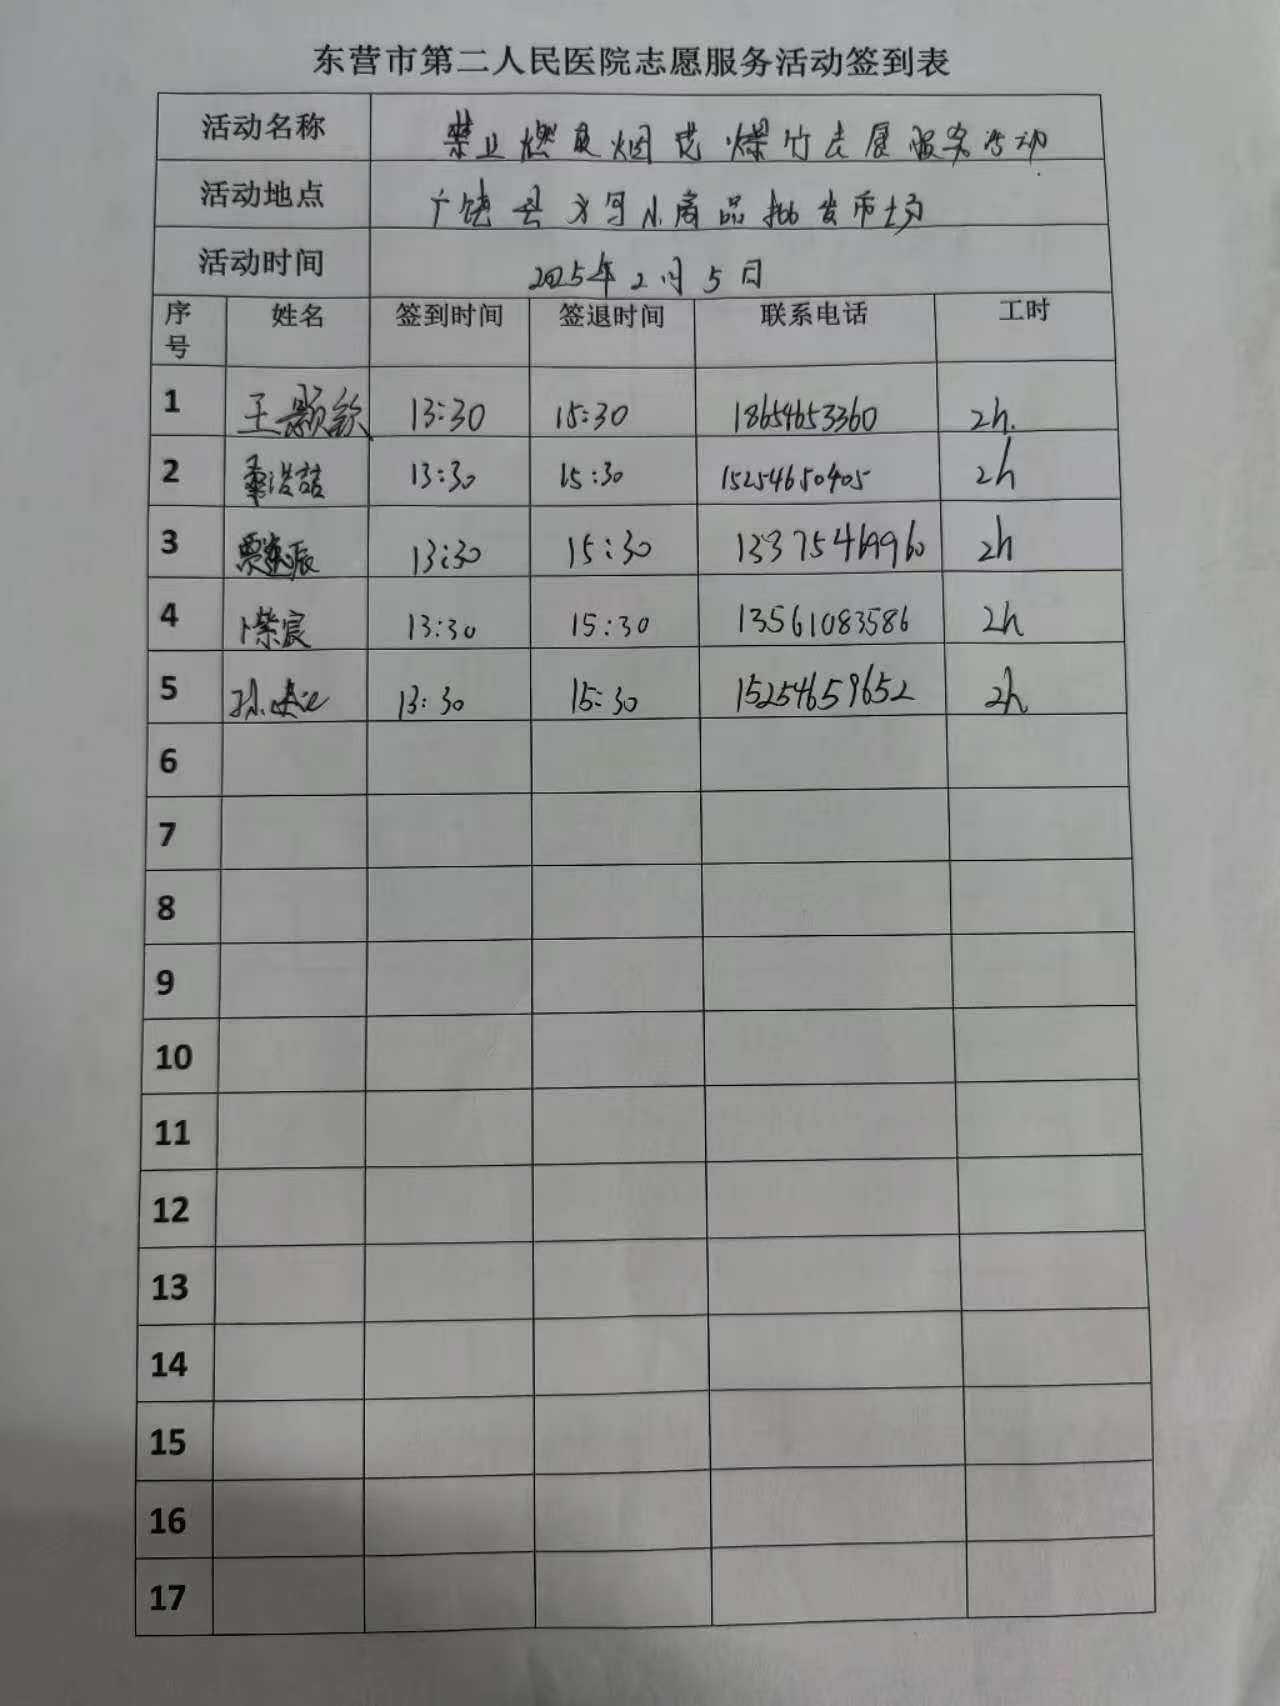 东营市第二人民医院志愿服务活动签到表
活动名称 禁止燃放烟花爆竹志愿服务活动
活动地点 广饶县义乌小商品批发市场
活动时间 2025年2月5日
序号 姓名 签到时间 签退时间 联系电话 工时
1 王颢钦 13:30 15:30 18654653360 2h.
2 秦浩喆 13:30 15:30 15254650405 2h
3 13:30 15:30 13375469960 2h
4 卜荣宸 13:30 15:30 13561083586 2h
5 孙 13:30 15:30 15254659652 2h
6
7
8
9
10
11
12
13
14
15
16
17